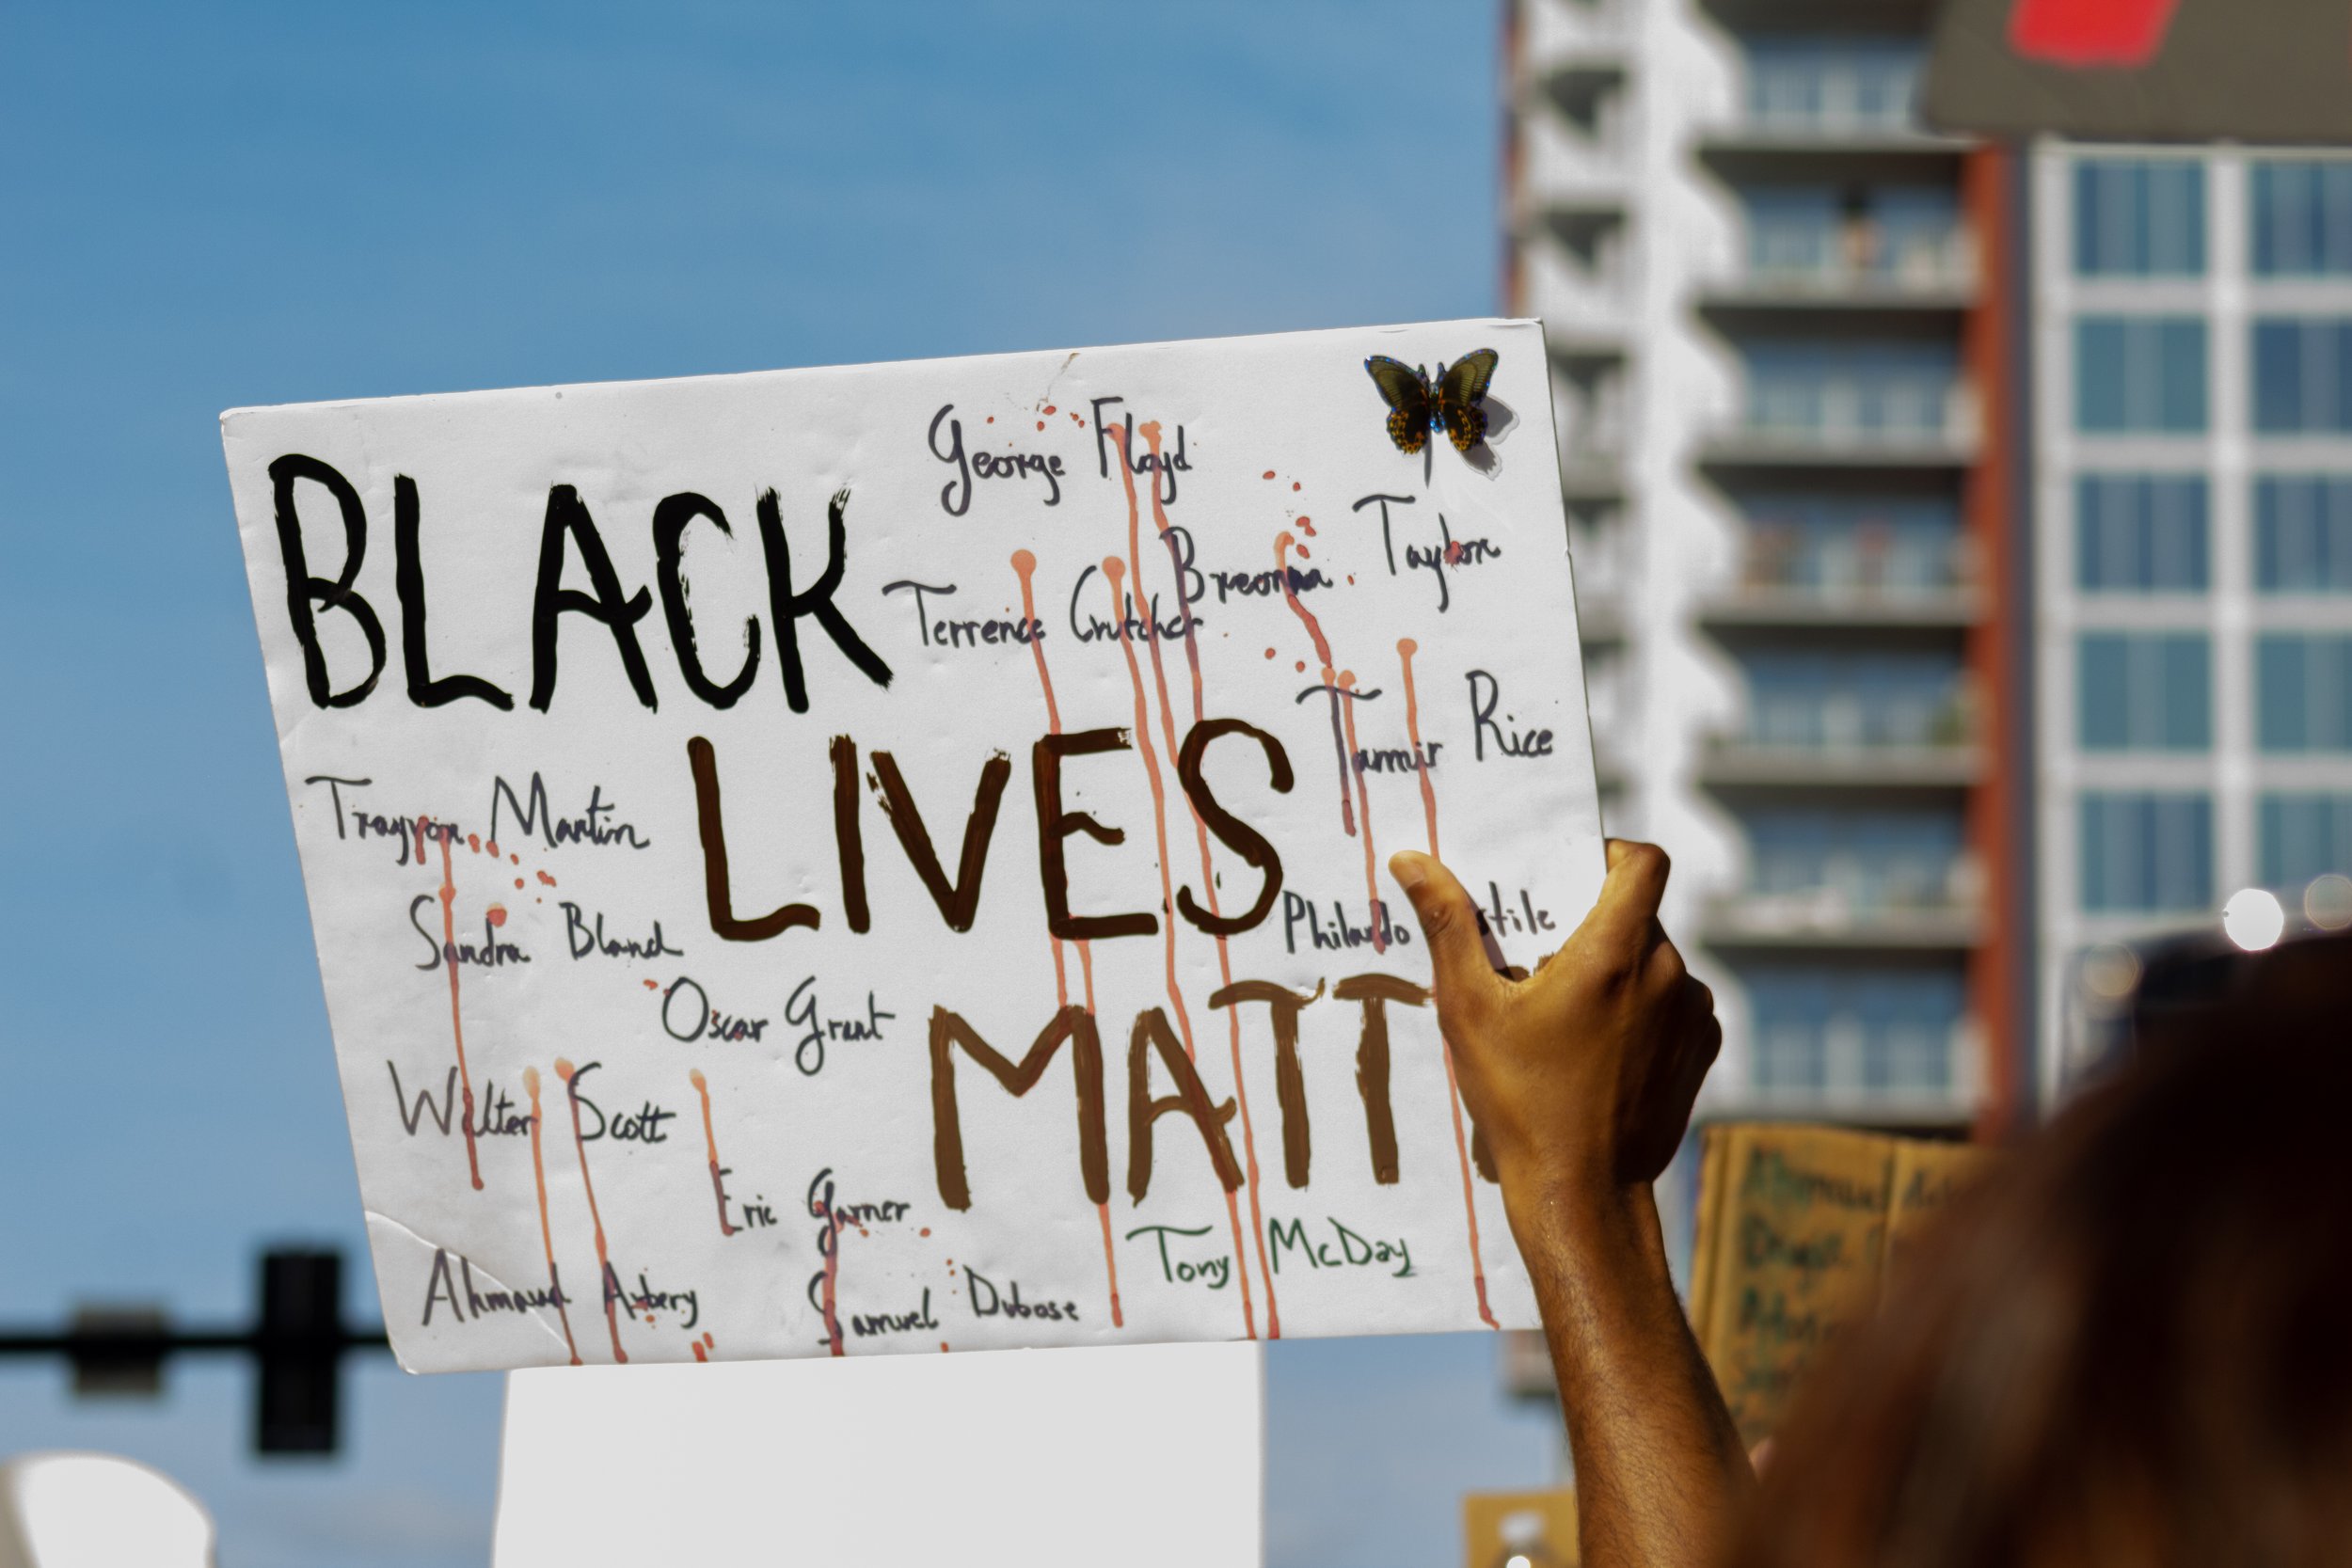 George Floyd
BLACK
Breonna Taylor
Terrence Crutcher
Tamir Rice
LIVES
Trayvon Martin
Sandra Bland
Philando stile
Oscar Grant
MATT
Walter Scott
Eric Garner
Tony McDay
Ahmaud Arbery
Samuel Dubose